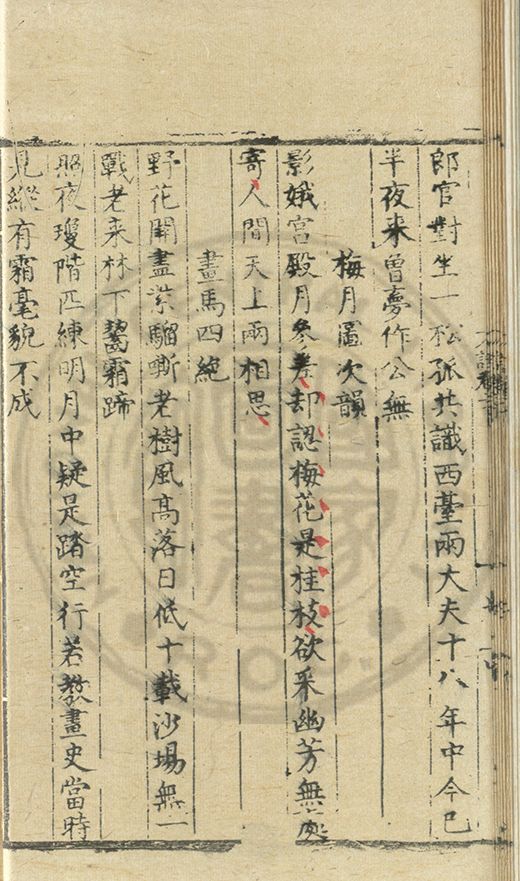 郎官對坐一松孤共識西臺兩大夫十八年中今已
半夜来曽夢作公無
梅月畵次韻
影娥宮殿月參差却認梅花是桂枝欲采幽芳無處
寄人間天上兩相思
畫馬四絶
野花開盡紫騮嘶老樹風髙落日低十載沙場無一
戰老来林下齧霜蹄
照夜瓊階匹練明月中疑是踏空行若教畫史當時
見縱有霜毫貌不成